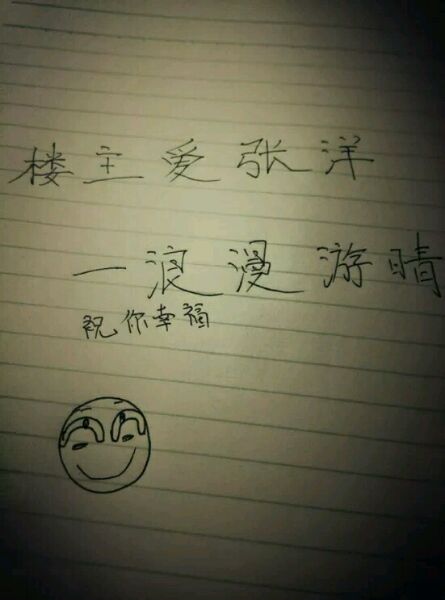 楼主爱张洋
一浪漫游晴
祝你幸福